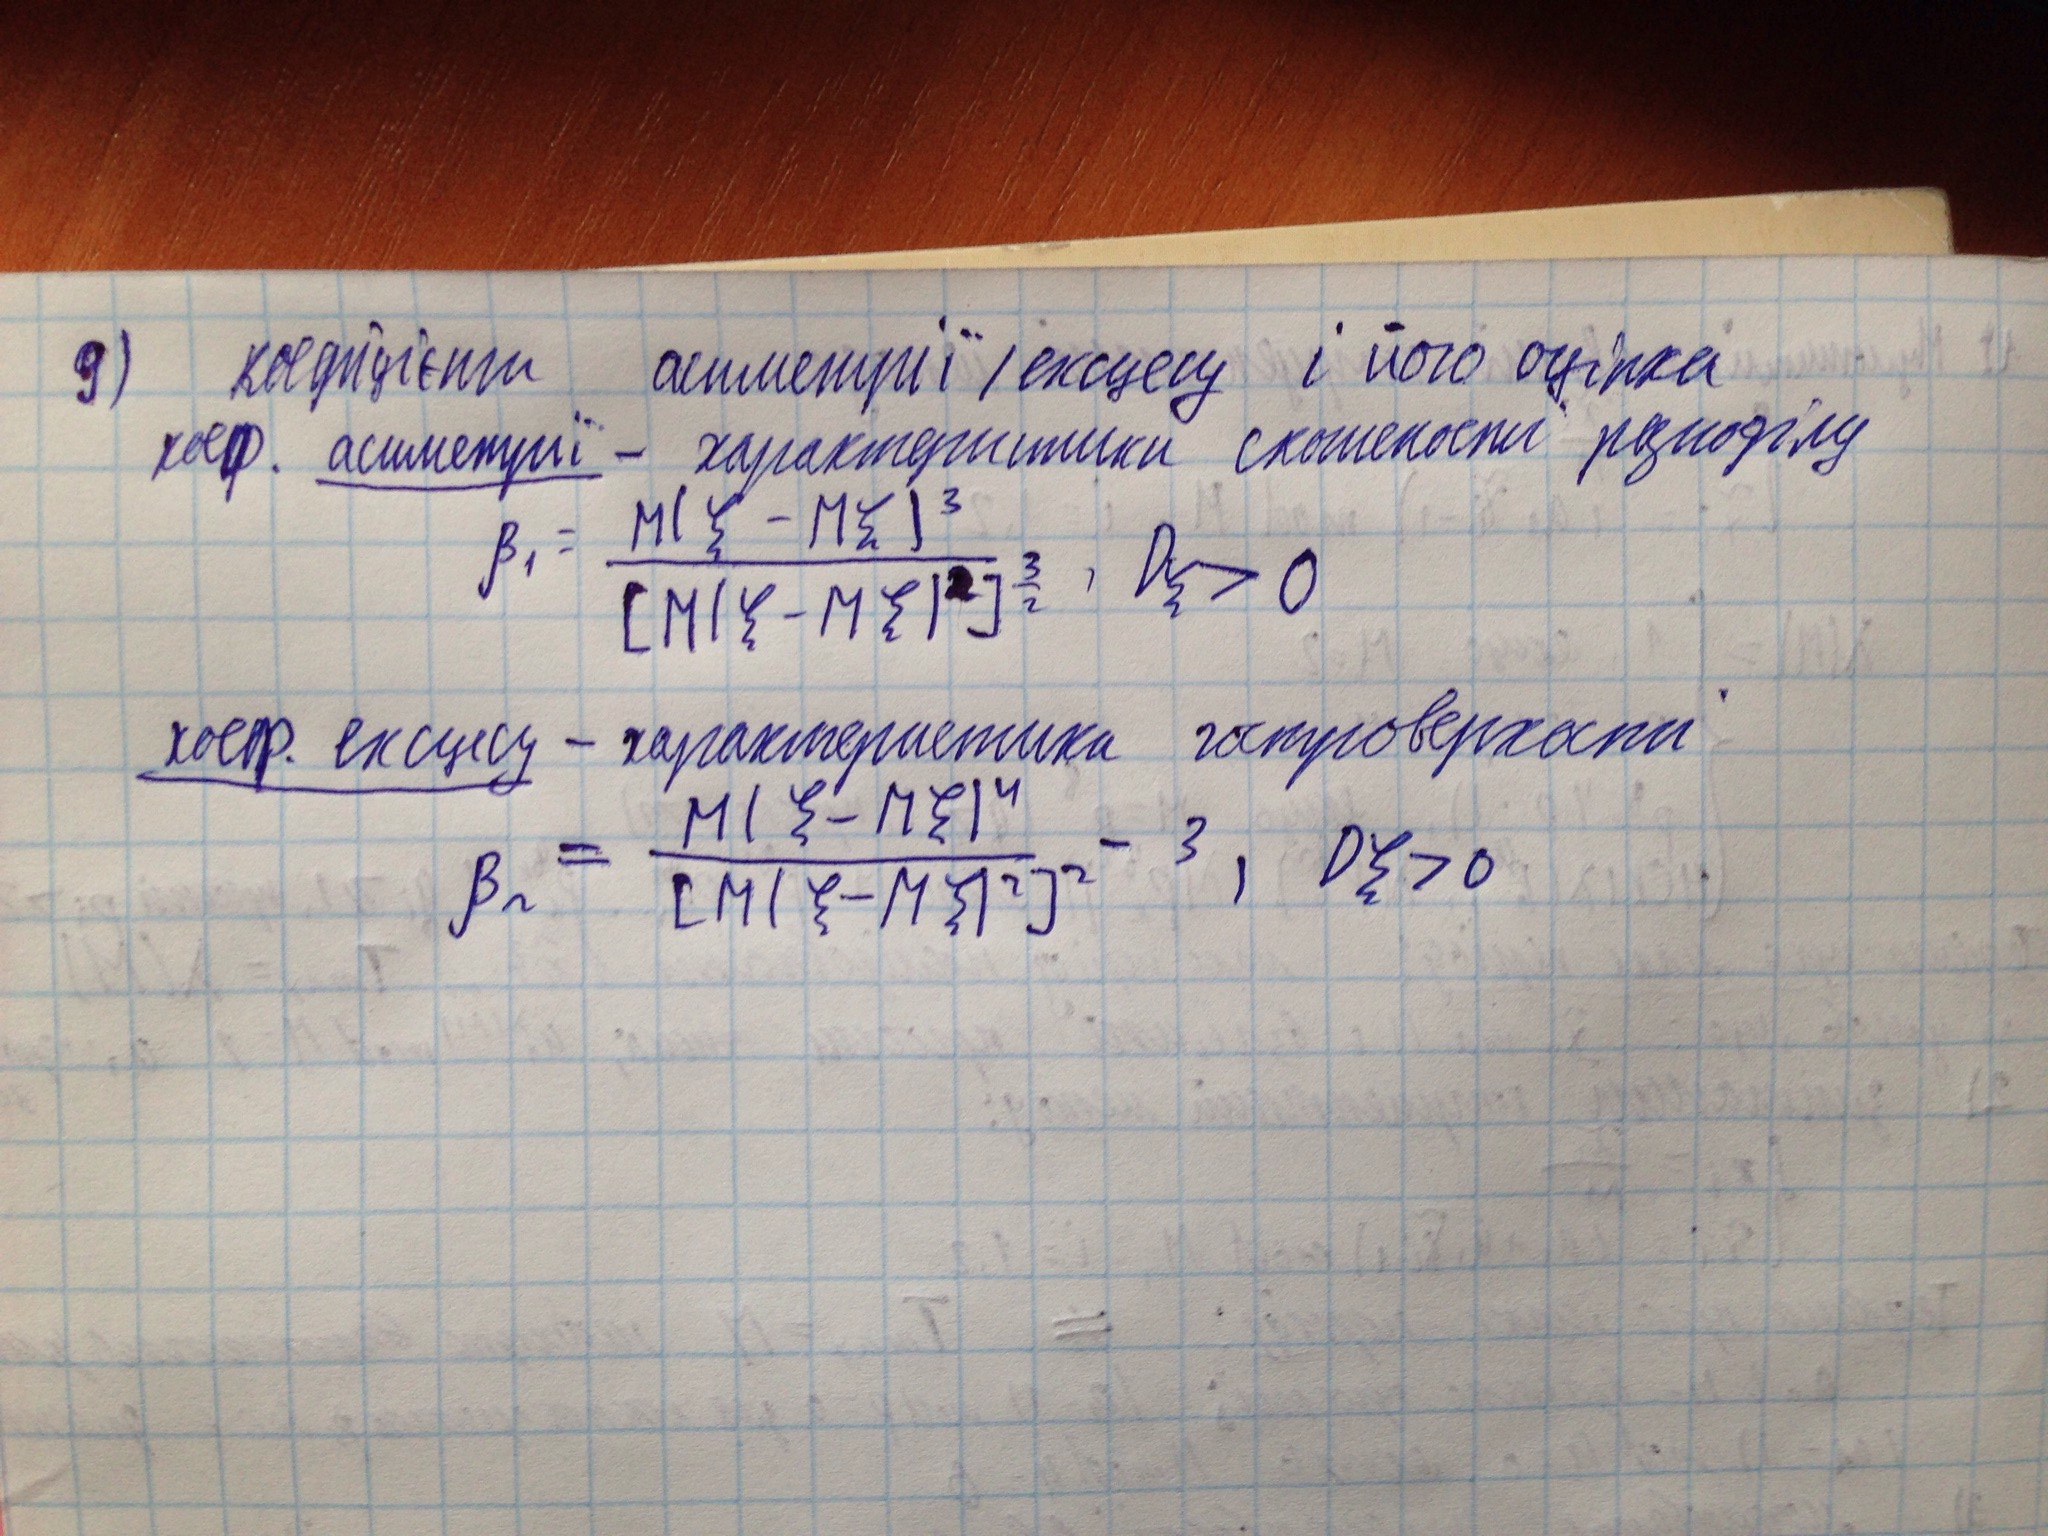 9) коефіцієнт асиметрії/ексцесу і його оцінка
коеф. асиметрії - характеристики скошеності розподілу
β₁ = M(ξ - Mξ)³ / [M(ξ - Mξ)²]^(3/2), Dξ > 0
коеф. ексцесу - характеристика гостроверхості
β₂ = M(ξ - Mξ)⁴ / [M(ξ - Mξ)²]² - 3, Dξ > 0